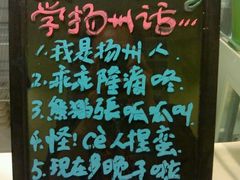 学扬州话...
1.我是扬州人.
2.乖乖隆滴咚.
3.熊猫張呱呱叫
4.怪!CE人提蛮
5.现在多晚子啦